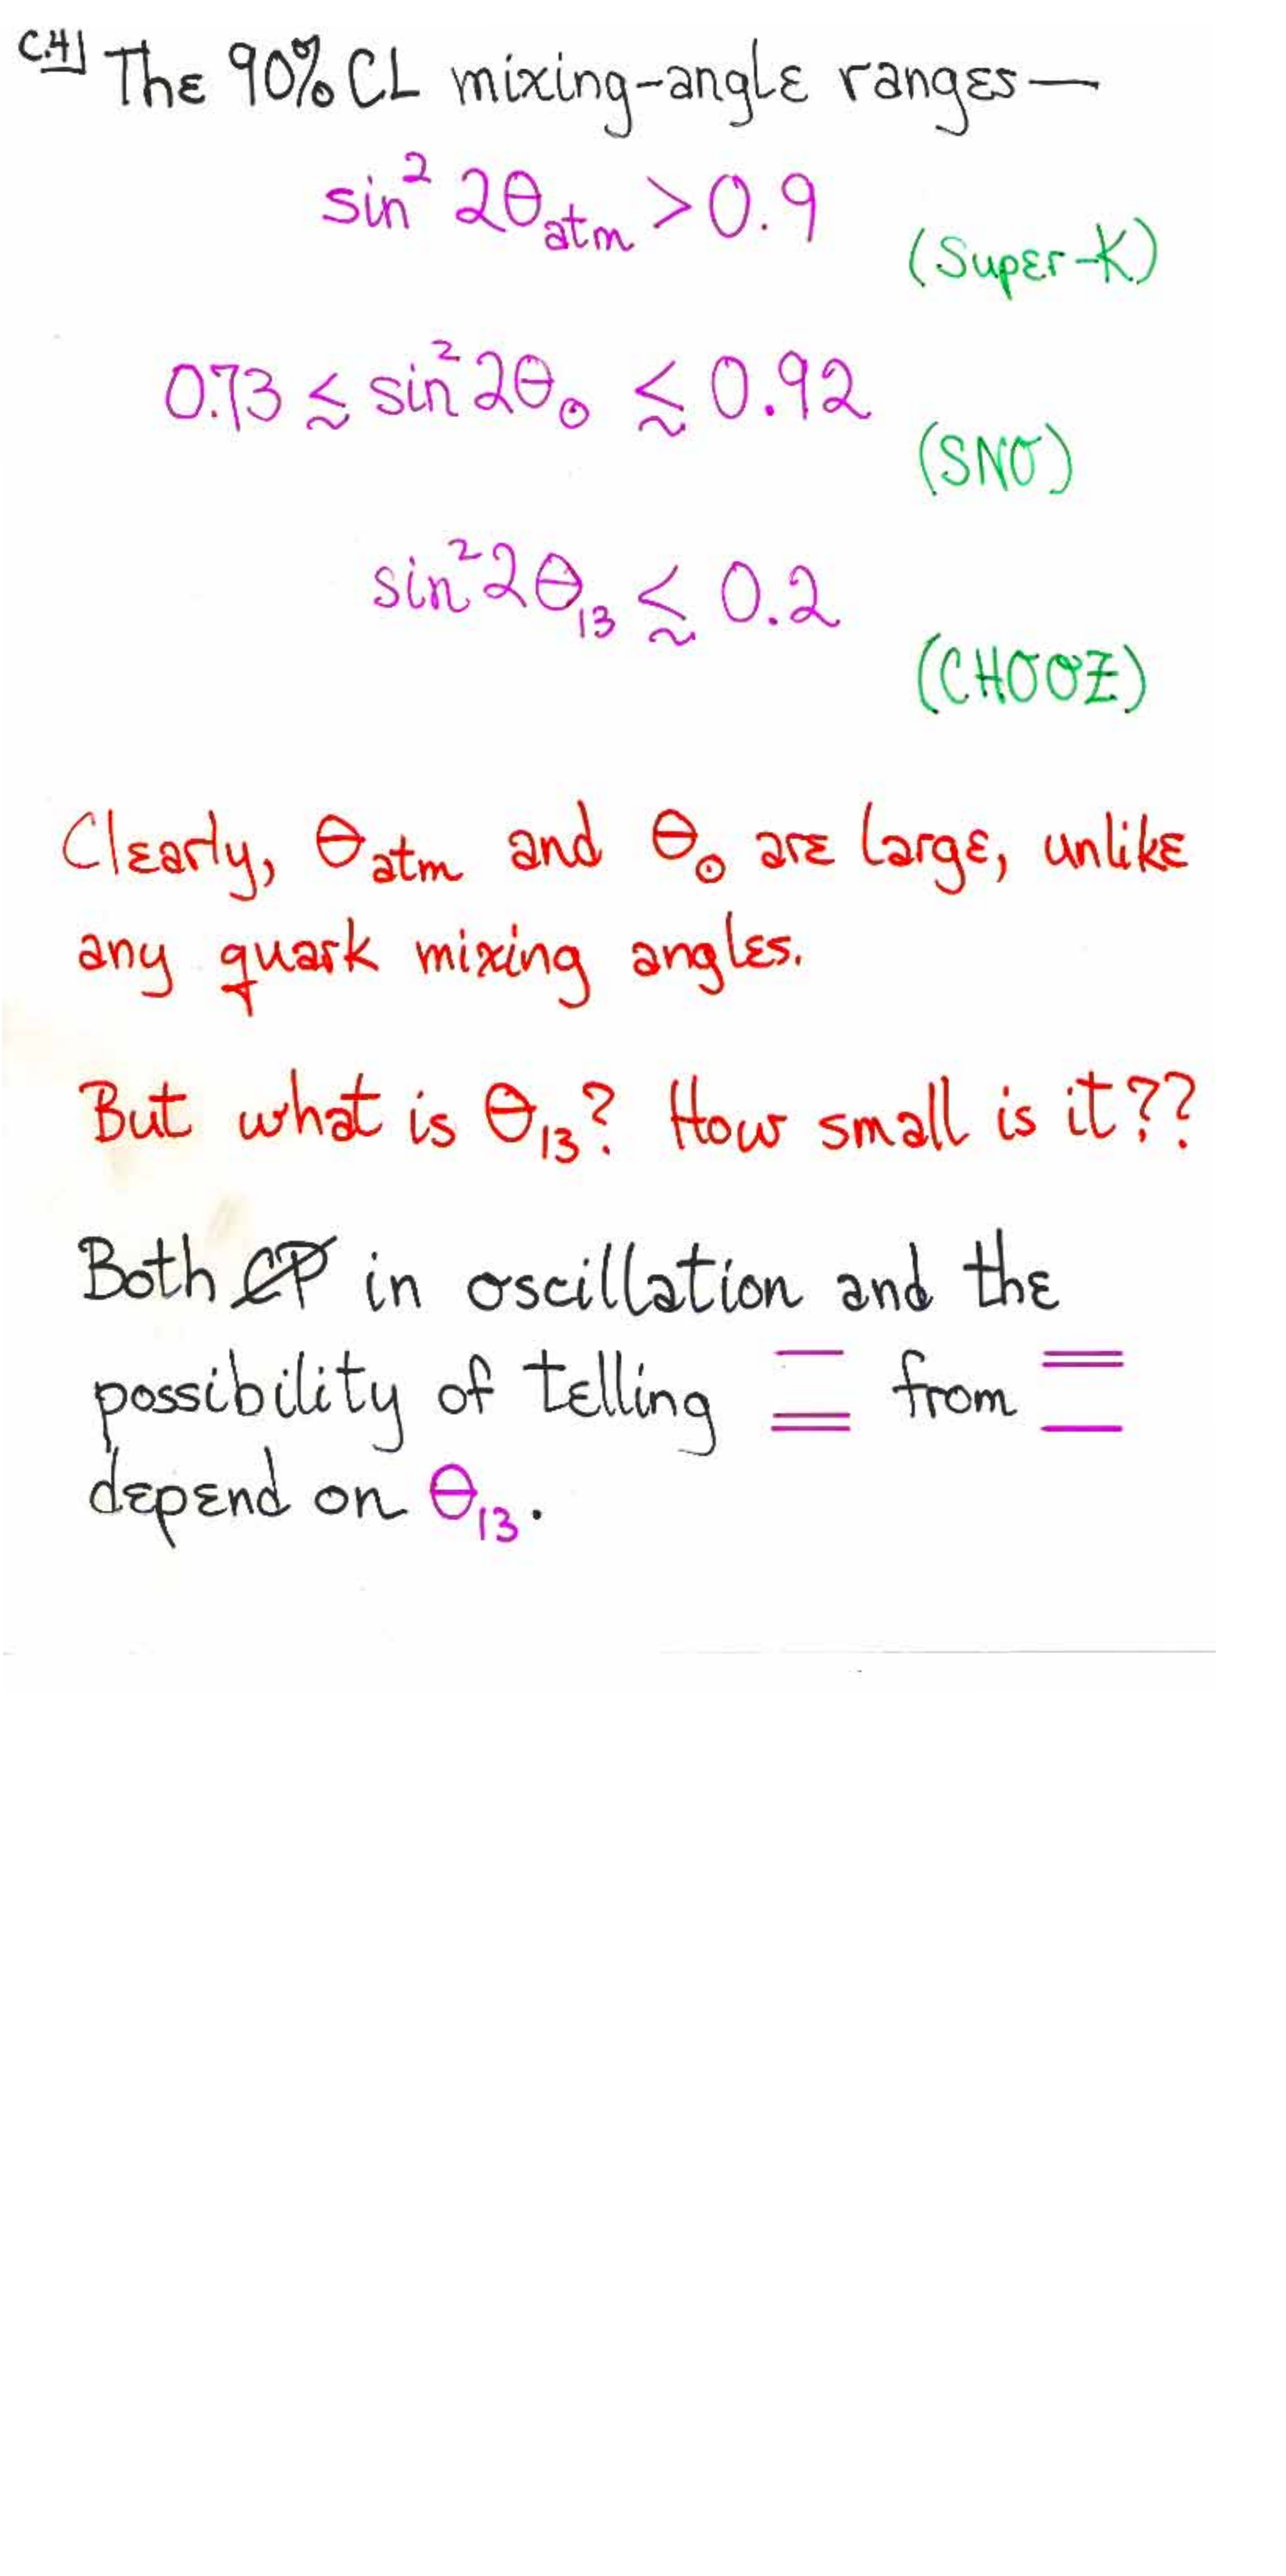 C.4| The 90% CL mixing-angle ranges—
sin² 2θ_atm > 0.9
(Super-K)
0.73 ≲ sin² 2θ_⊙ ≲ 0.92
(SNO)
sin² 2θ₁₃ ≲ 0.2
(CHOOZ)
Clearly, θ_atm and θ_⊙ are large, unlike
any quark mixing angles.
But what is θ₁₃? How small is it??
Both C̸P̸ in oscillation and the
possibility of telling from
depend on θ₁₃.